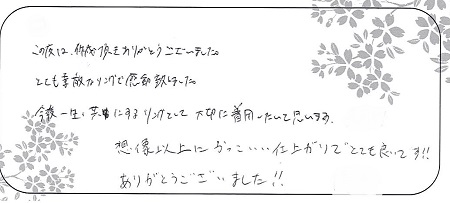 この度は、作成頂きありがとうございました。
とても素敵なリングで感動致しました。
今後一生、共にするリングとして大切に着用したいと思います。
想像以上にかっこいい仕上がりでとても良いです!!
ありがとうございました!!